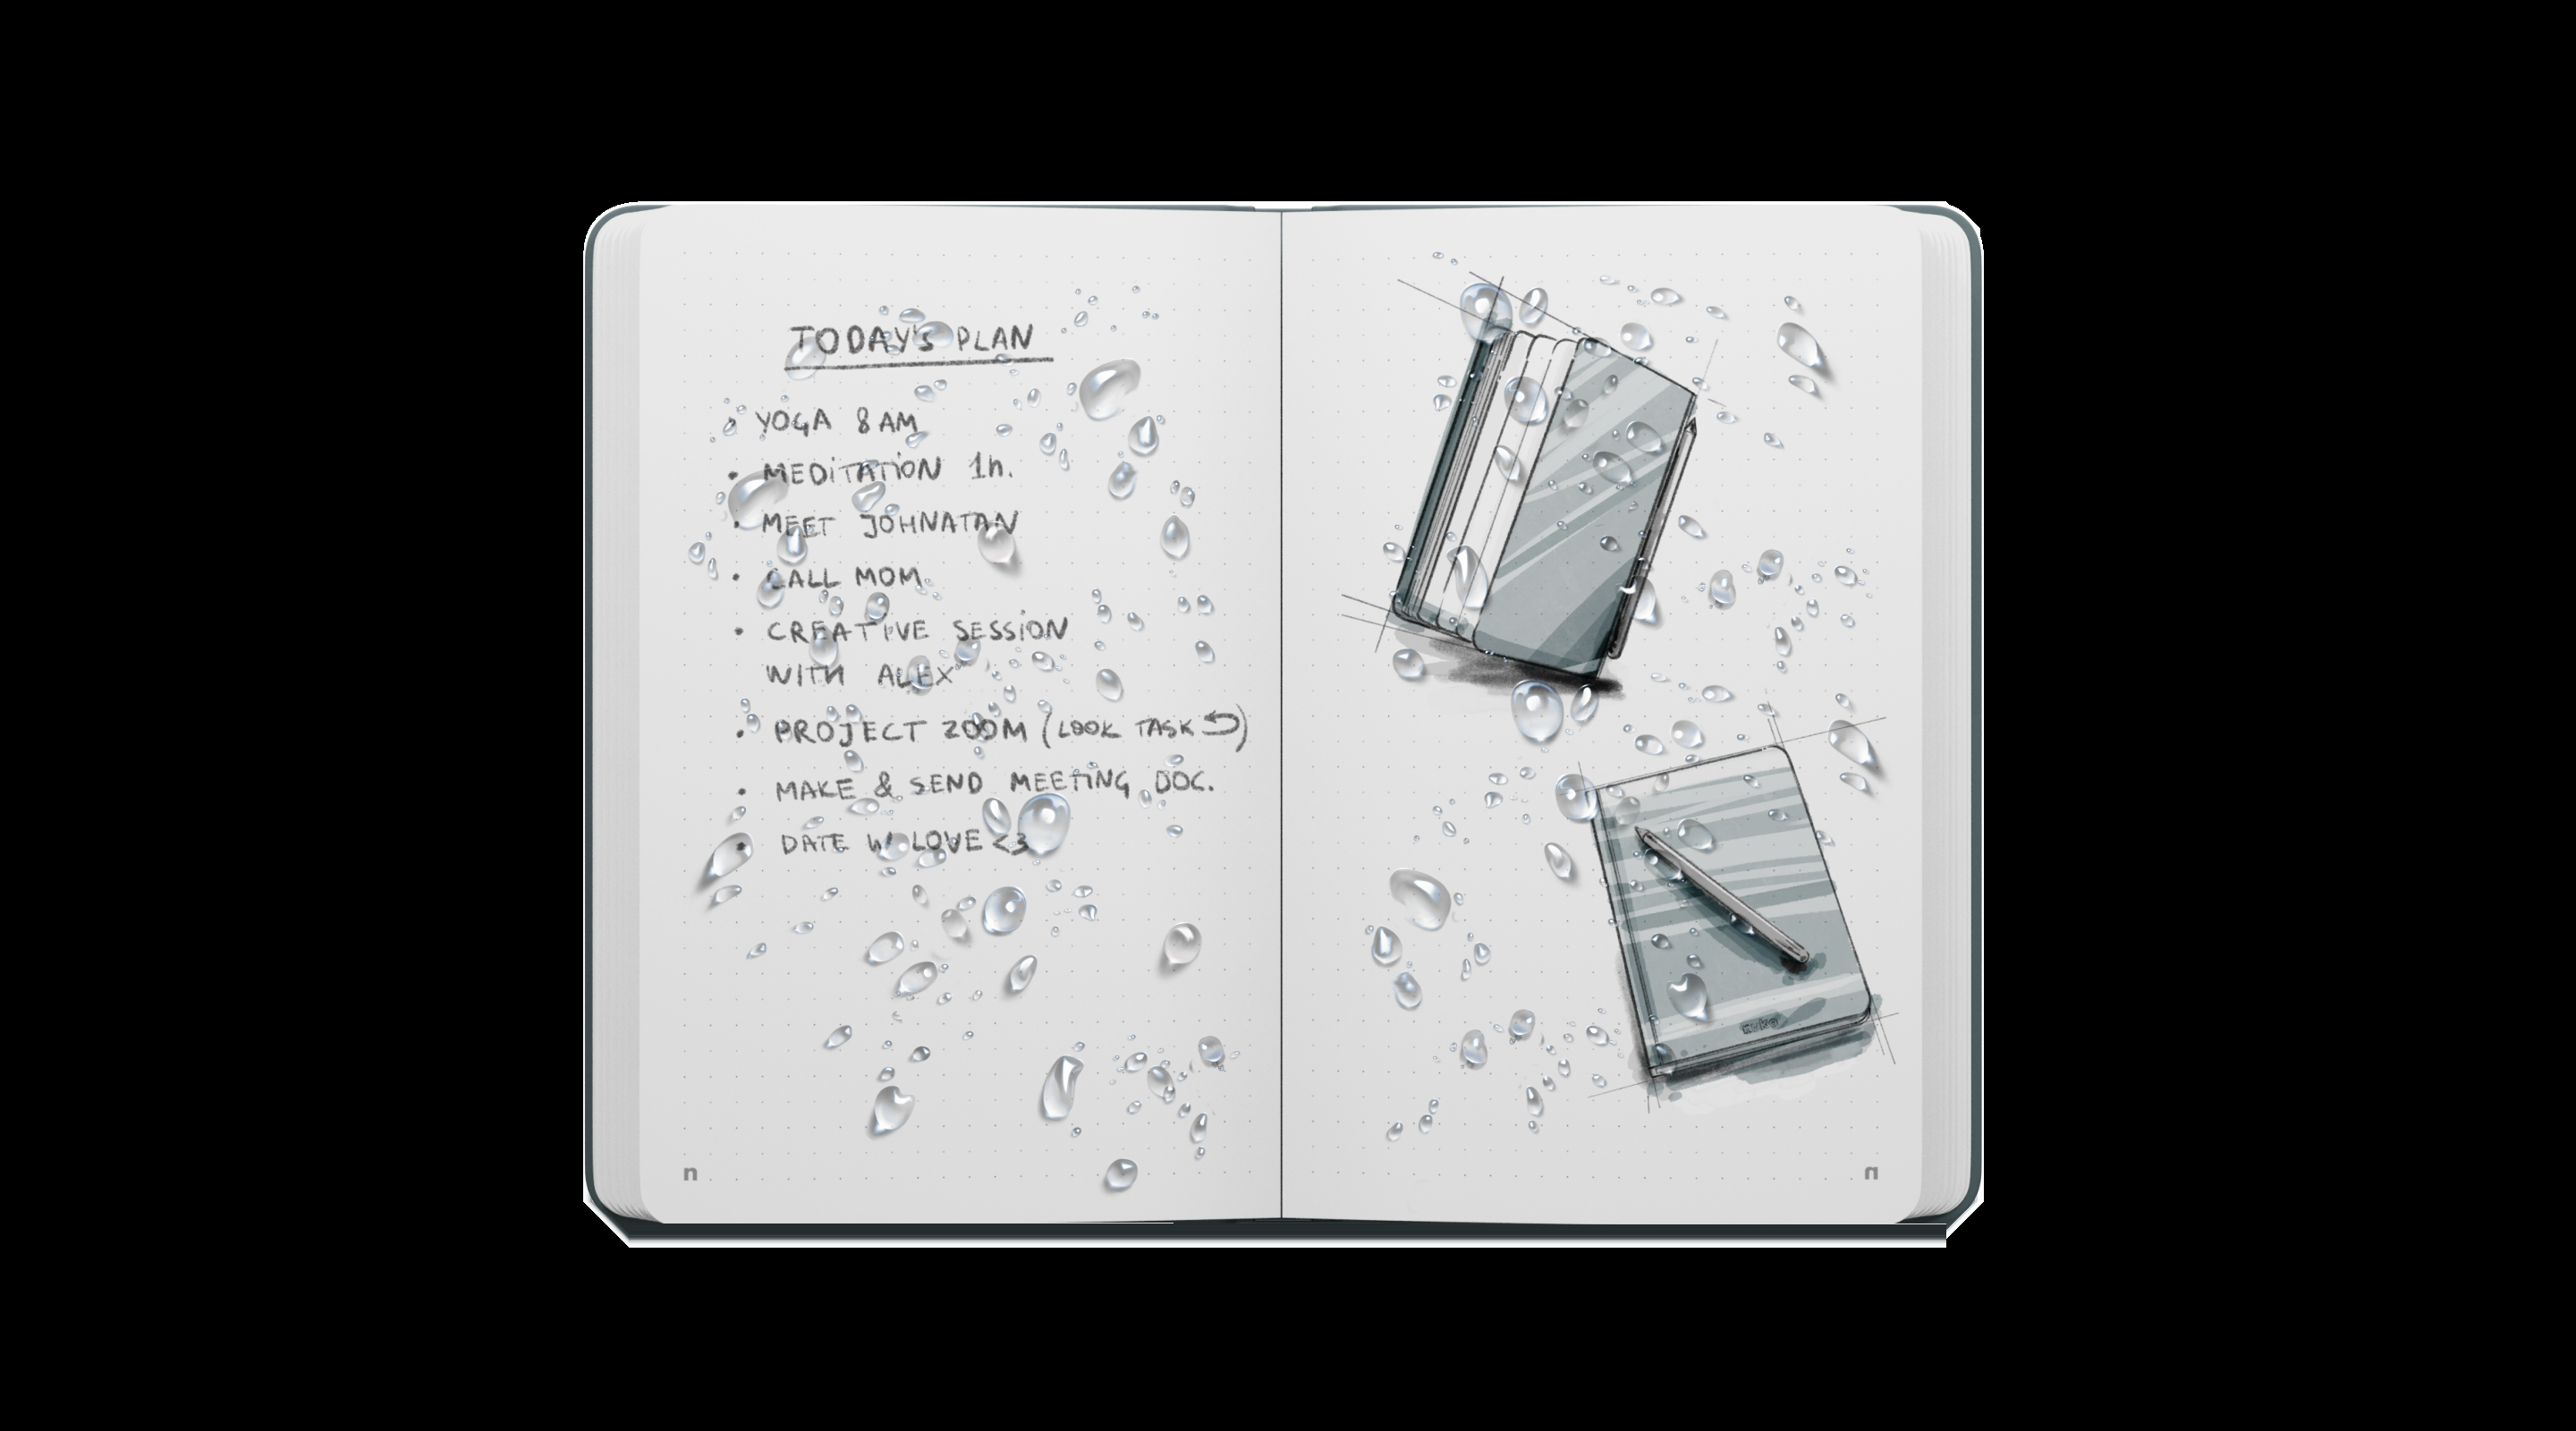 TODAY'S PLAN
• YOGA 8 AM
• MEDiTATiON 1h.
• MEET JOHNATAN
• CALL MOM
• CREATIVE SESSiON
WITH ALEX
• PROJECT ZOOM (LOOK TASK ⮌)
• MAKE & SEND MEETING DOC.
• DATE W/ LOVE <3
n
n